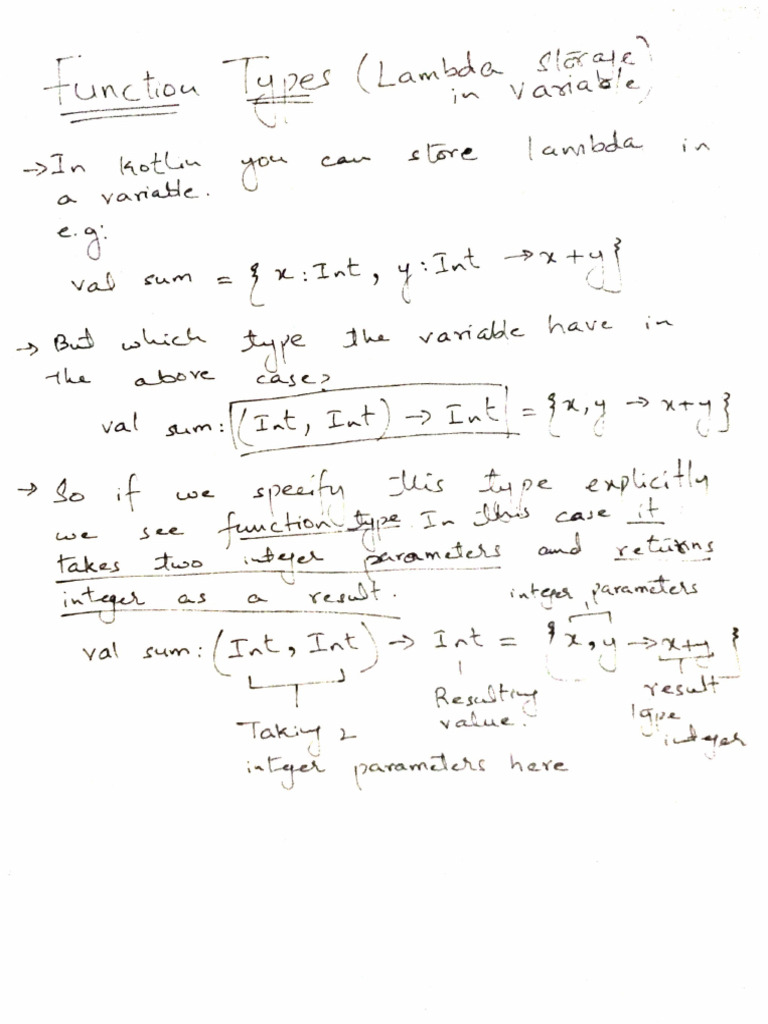 Function Types (Lambda Storage
in variable)
→ In Kotlin you can store lambda in
a variable.
e.g:
val sum = { x : Int, y : Int → x + y }
→ But which type the variable have in
the above case?
val sum: (Int, Int) → Int = { x, y → x+y }
→ So if we specify this type explicitly
we see function type. In this case it
takes two integer parameters and returns
integer as a result.
integer parameters
val sum: (Int, Int) → Int = { x, y → x+y }
Resulting
value.
result
type
integer
Taking 2
integer parameters here